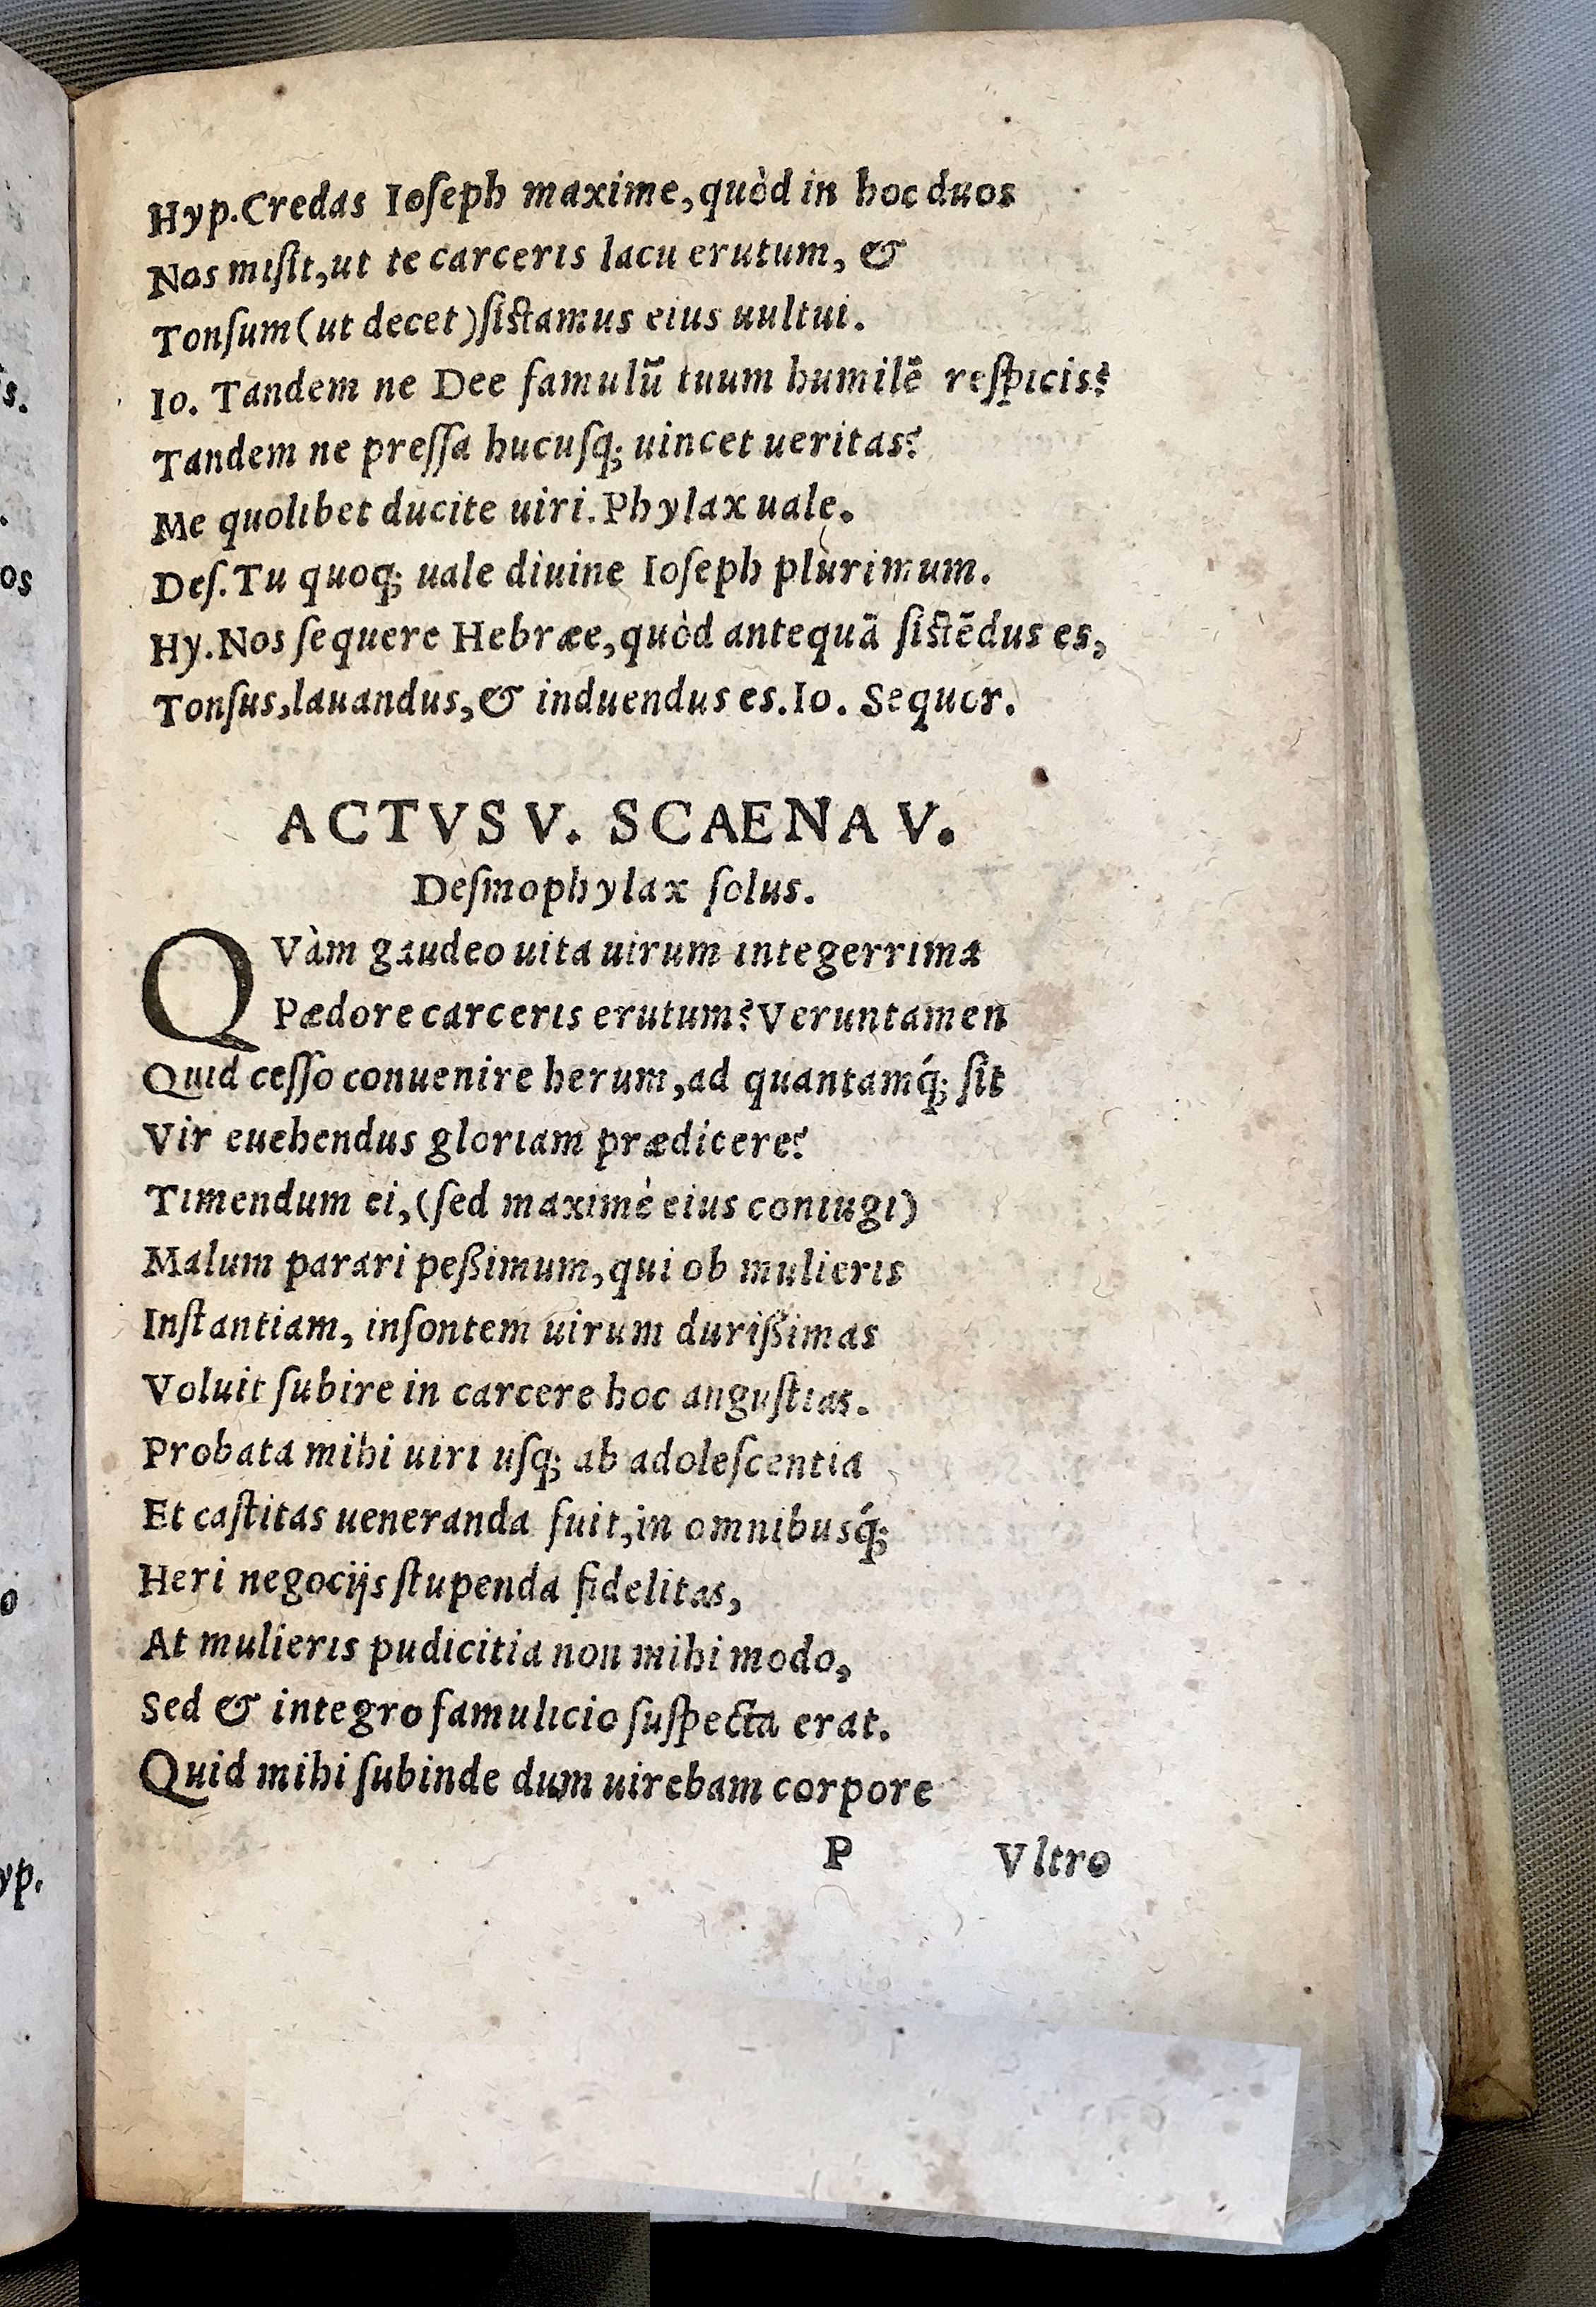 Hyp. Credas Ioſeph maxime, quòd in hoc duos
Nos miſit, ut te carceris lacu erutum, &
Tonſum (ut decet) ſiſtamus eius uultui.
Io. Tandem ne Dee famulũ tuum humilẽ reſpicis?
Tandem ne preſſa hucuſq; uincet ueritas?
Me quolibet ducite uiri. Phylax uale.
Deſ. Tu quoq; uale diuine Ioſeph plurimum.
Hy. Nos ſequere Hebræe, quòd antequã ſiſtẽdus es,
Tonſus, lauandus, & induendus es. Io. Sequor.
ACTVS V. SCAENA V.
Deſmophylax ſolus.
QVàm gaudeo uita uirum integerrima
Pædore carceris erutum? Veruntamen
Quid ceſſo conuenire herum, ad quantamq́; ſit
Vir euehendus gloriam prædicere?
Timendum ei, (ſed maximè eius coniugi)
Malum parari peßimum, qui ob mulieris
Inſtantiam, inſontem uirum durißimas
Voluit ſubire in carcere hoc anguſtias.
Probata mihi uiri uſq; ab adoleſcentia
Et caſtitas ueneranda fuit, in omnibusq́;
Heri negocijs ſtupenda fidelitas,
At mulieris pudicitia non mihi modo,
Sed & integro famulicio ſuſpecta erat.
Quid mihi ſubinde dum uirebam corpore
P Vltro
s.
.
os
o
yp.